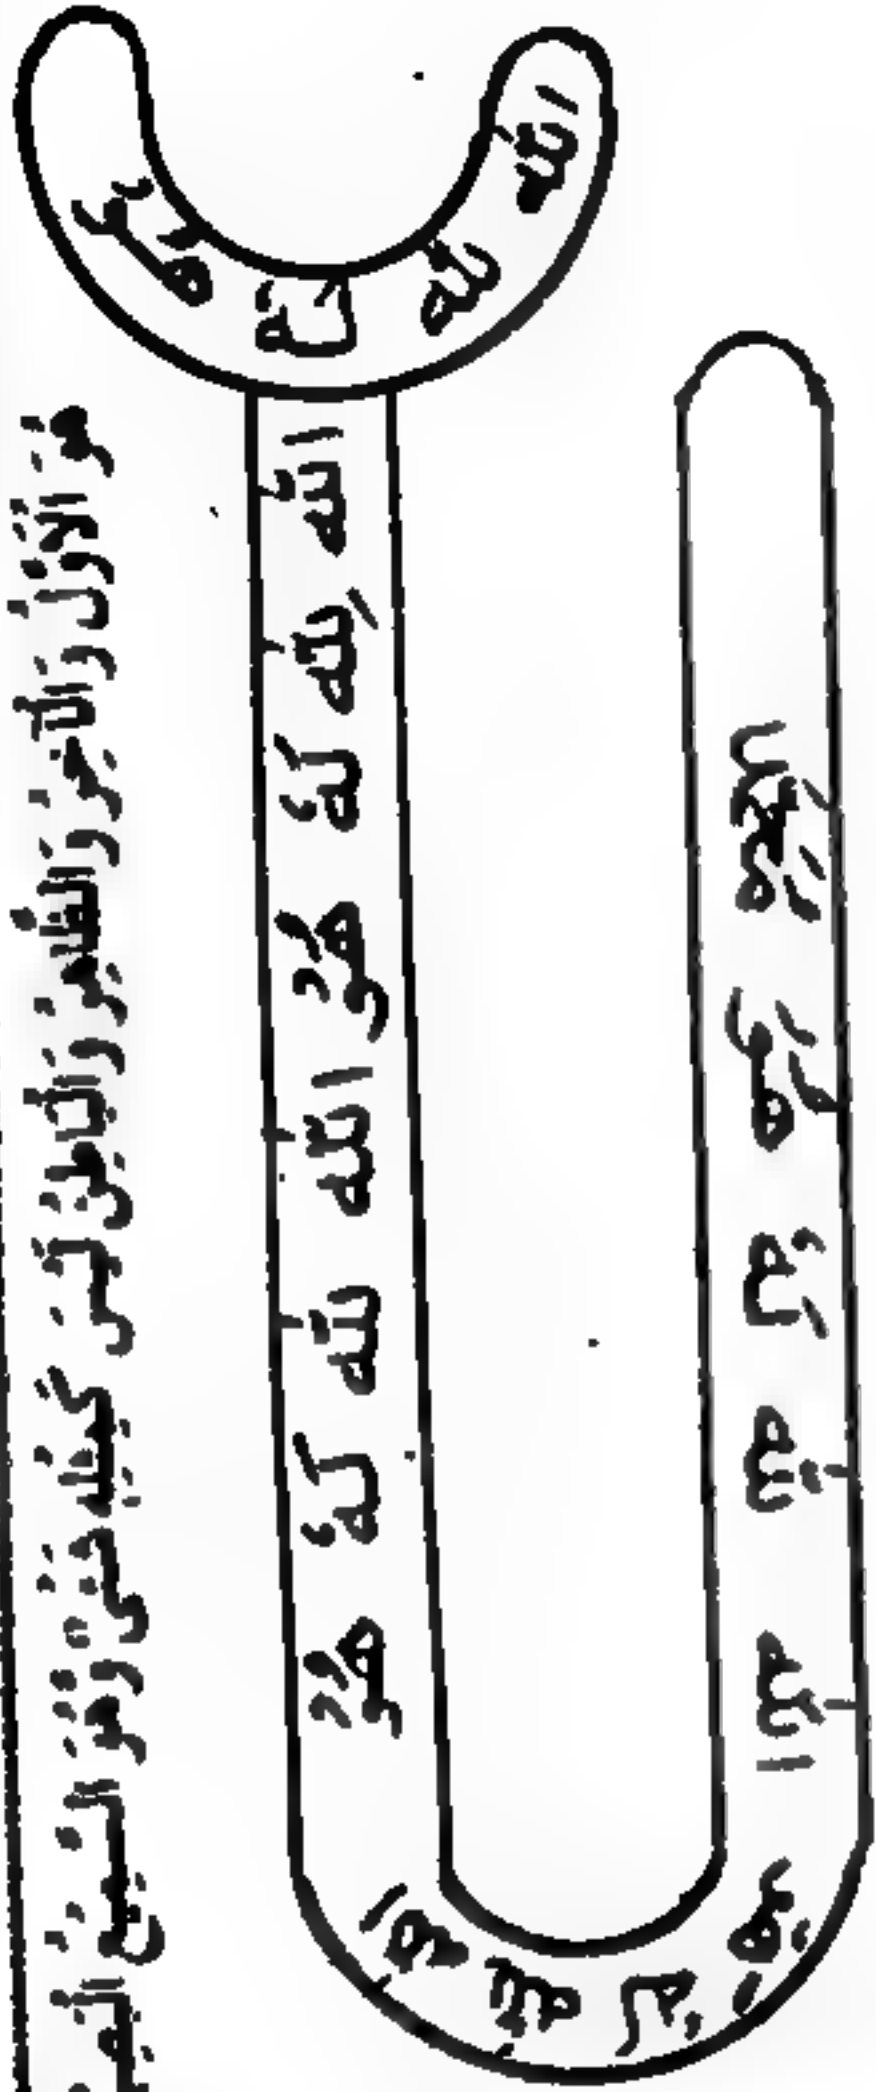 هُوَ الْأَوَّلُ وَالْآخِرُ وَالظَّاهِرُ وَالْبَاطِنُ لَيْسَ كَمِثْلِهِ شَيْءٌ وَهُوَ السَّمِيعُ
الله لله لَهُ هُوَ
الله لِله لَهُ هُوَ الله لله لَهُ هُوَ
الله لله لَهُ هُوَ
الله لله لَهُ هُوَ مُحَمَّد